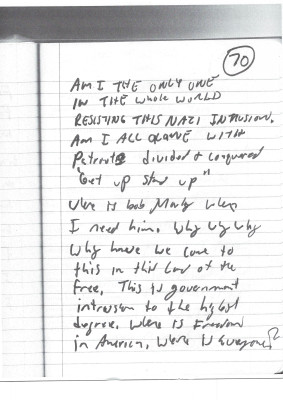 70
AM I THE ONLY ONE
IN THE Whole WORLD
RESISTING THIS NAZI INTRUSION.
AM I ALL ALONE WITH
Patriots divided & conquered
"Get up Stand up"
Where is bob Marly when
I need him. Why Why Why
Why have we come to
this in this Land of the
free. This is government
intrusion to the highest
degree. Where is Freedom
in America. Where is everyone?